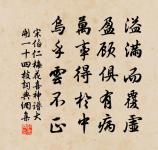 溢滿而覆虛
盈願俱有病
萬事得於中
烏乎雲不正
宋伯仁梅花喜神譜大
開一十四枝詞典網集